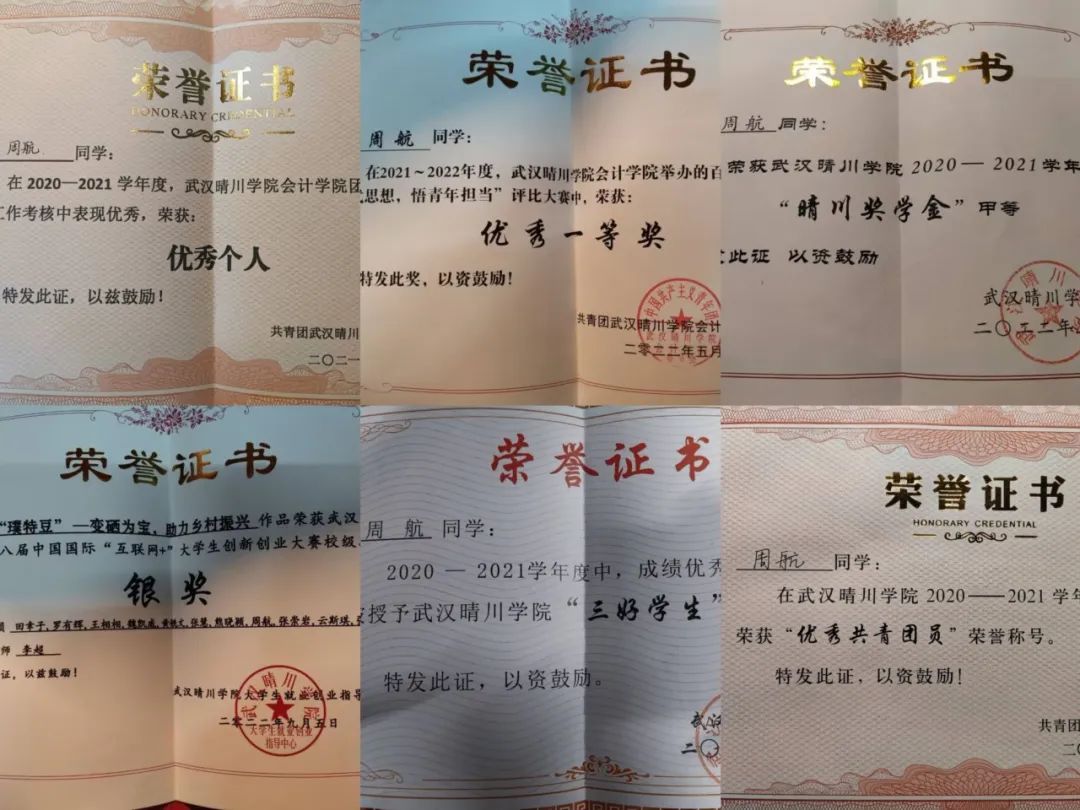 荣誉证书
HONORARY CREDENTIAL
周航 同学：
在 2020—2021 学年度，武汉晴川学院会计学院团
工作考核中表现优秀，荣获：
优秀个人
特发此证，以兹鼓励！
共青团武汉晴川
二〇二一
荣誉证书
周航 同学：
在2021～2022年度，武汉晴川学院会计学院举办的百
思想，悟青年担当”评比大赛中，荣获：
优秀一等奖
特发此奖，以资鼓励！
中国共产主义青年团
武汉晴川学院
共青团武汉晴川学院会计
二零二二年五月
荣誉证书
周航 同学：
荣获武汉晴川学院 2020—2021 学年
“晴川奖学金”甲等
此证 以资鼓励
武汉晴川学
二〇二二年
荣誉证书
“璞特豆”—变硒为宝，助力乡村振兴 作品荣获武汉
八届中国国际“互联网+”大学生创新创业大赛校级
银奖
田幸子,罗有辉,王相相,魏凯成,张慧,熊晓颖,周航,张崇岩,云斯琪,
师 李超
证，以兹鼓励！
武汉晴川学院大学生就业创业指导
二零二二年九月五日
武汉晴川学院
大学生就业创业
指导中心
荣誉证书
周航 同学：
2020—2021学年度中，成绩优秀
授予武汉晴川学院“三好学生”
特发此证，以资鼓励。
武汉
二〇
荣誉证书
HONORARY CREDENTIAL
周航 同学：
在武汉晴川学院 2020——2021 学年
荣获“优秀共青团员”荣誉称号。
特发此证，以资鼓励！
共青团
二〇